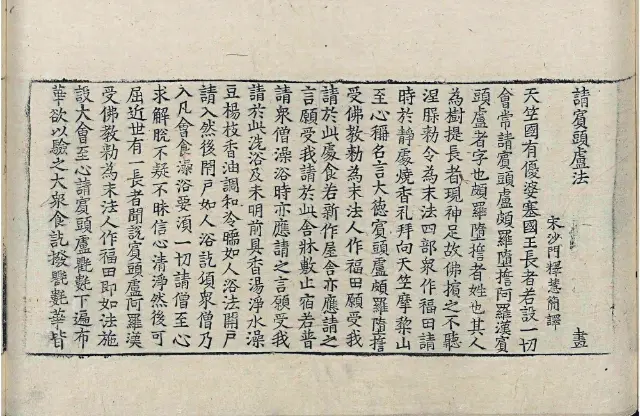 請賓頭盧法　盡
宋沙門釋慧簡譯
天竺國有優婆塞國王長者若設一切
會常請賓頭盧頗羅墮誓阿羅漢賓
頭盧者字也頗羅墮誓者姓也其人
為樹提長者現神足故佛擯之不聽
涅槃勅令為末法四部衆作福田請
時於靜處燒香礼拜向天竺摩梨山
至心稱名言大德賓頭盧頗羅墮誓
受佛教勅為末法人作福田願受我
請於此處食若新作屋舍亦應請之
言願受我請於此舍牀敷止宿若普
請衆僧澡浴時亦應請之言願受我
請於此洗浴及未明前具香湯淨水澡
豆楊枝香油調和冷煖如人浴法開戶
請入然後閉戶如人浴訖頃衆僧乃
入凡會食澡浴要須一切請僧至心
求解脫不疑不昧信心清淨然後可
屈近世有一長者聞說賓頭盧阿羅漢
受佛教勅為末法人作福田即如法施
設大會至心請賓頭盧氍毹下遍布
華欲以驗之大衆食訖撥氍毹華皆